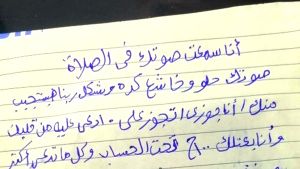 أنا سمعت صوتك فى الصلاة
صوتك حلو وخاشع كده وشكل ربنا هيستجيب
منك / أنا جوزى اتجوز على . ادعى عليه من قلبك
وأنا بعتلك .. ج تحت الحساب وكل ما تدعى أكتر